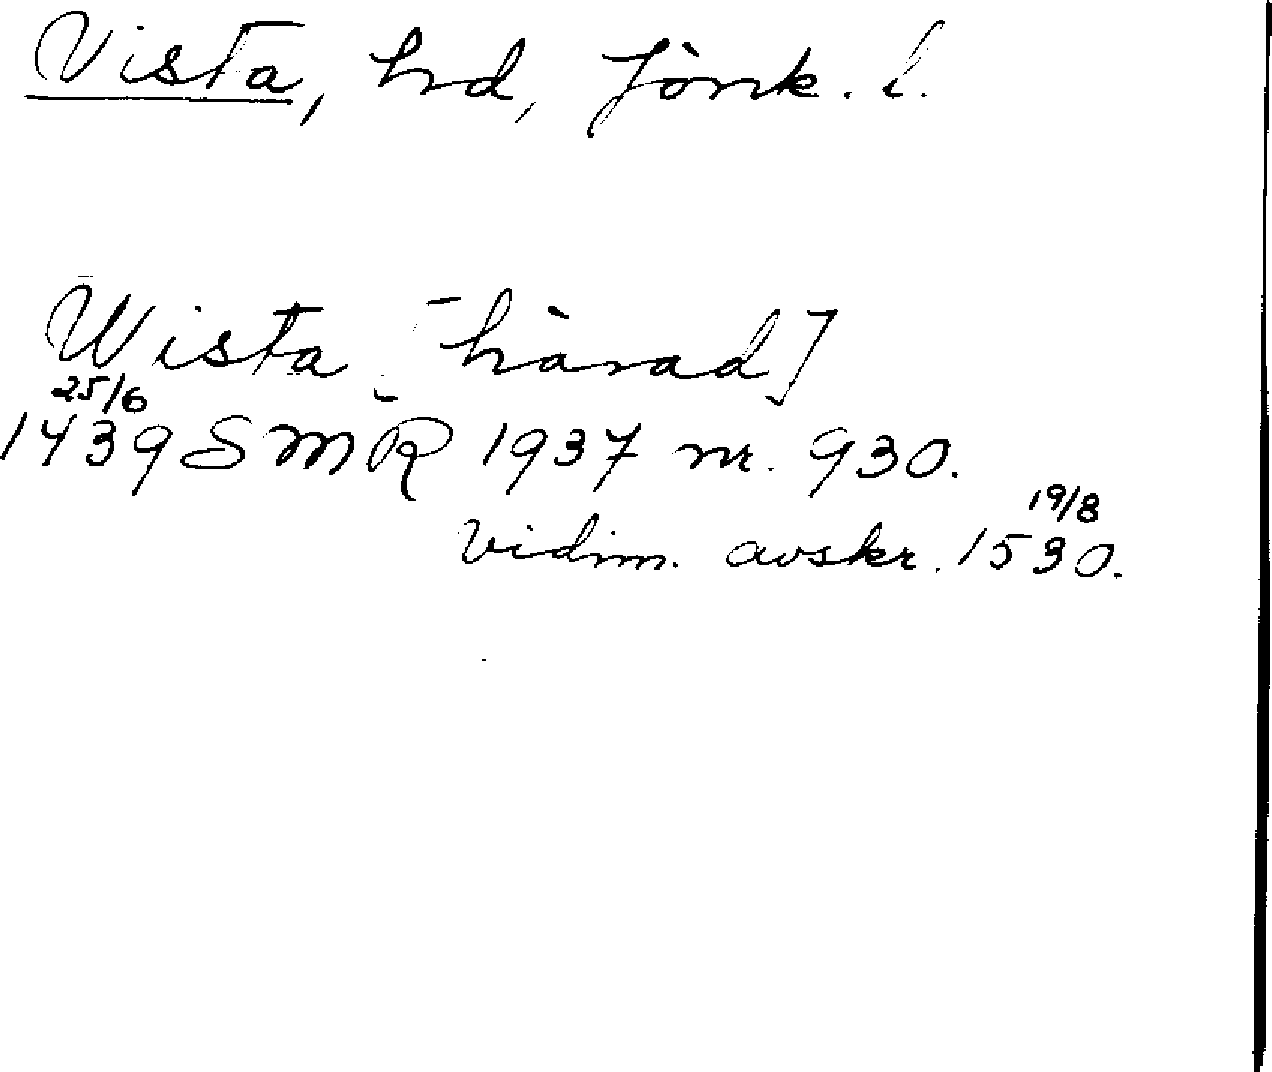 Vista, hd, Jönk. l.
Wista [härad]
25/6
1439 SMR 1937 nr. 930.
19/8
Vidim. avskr. 1530.